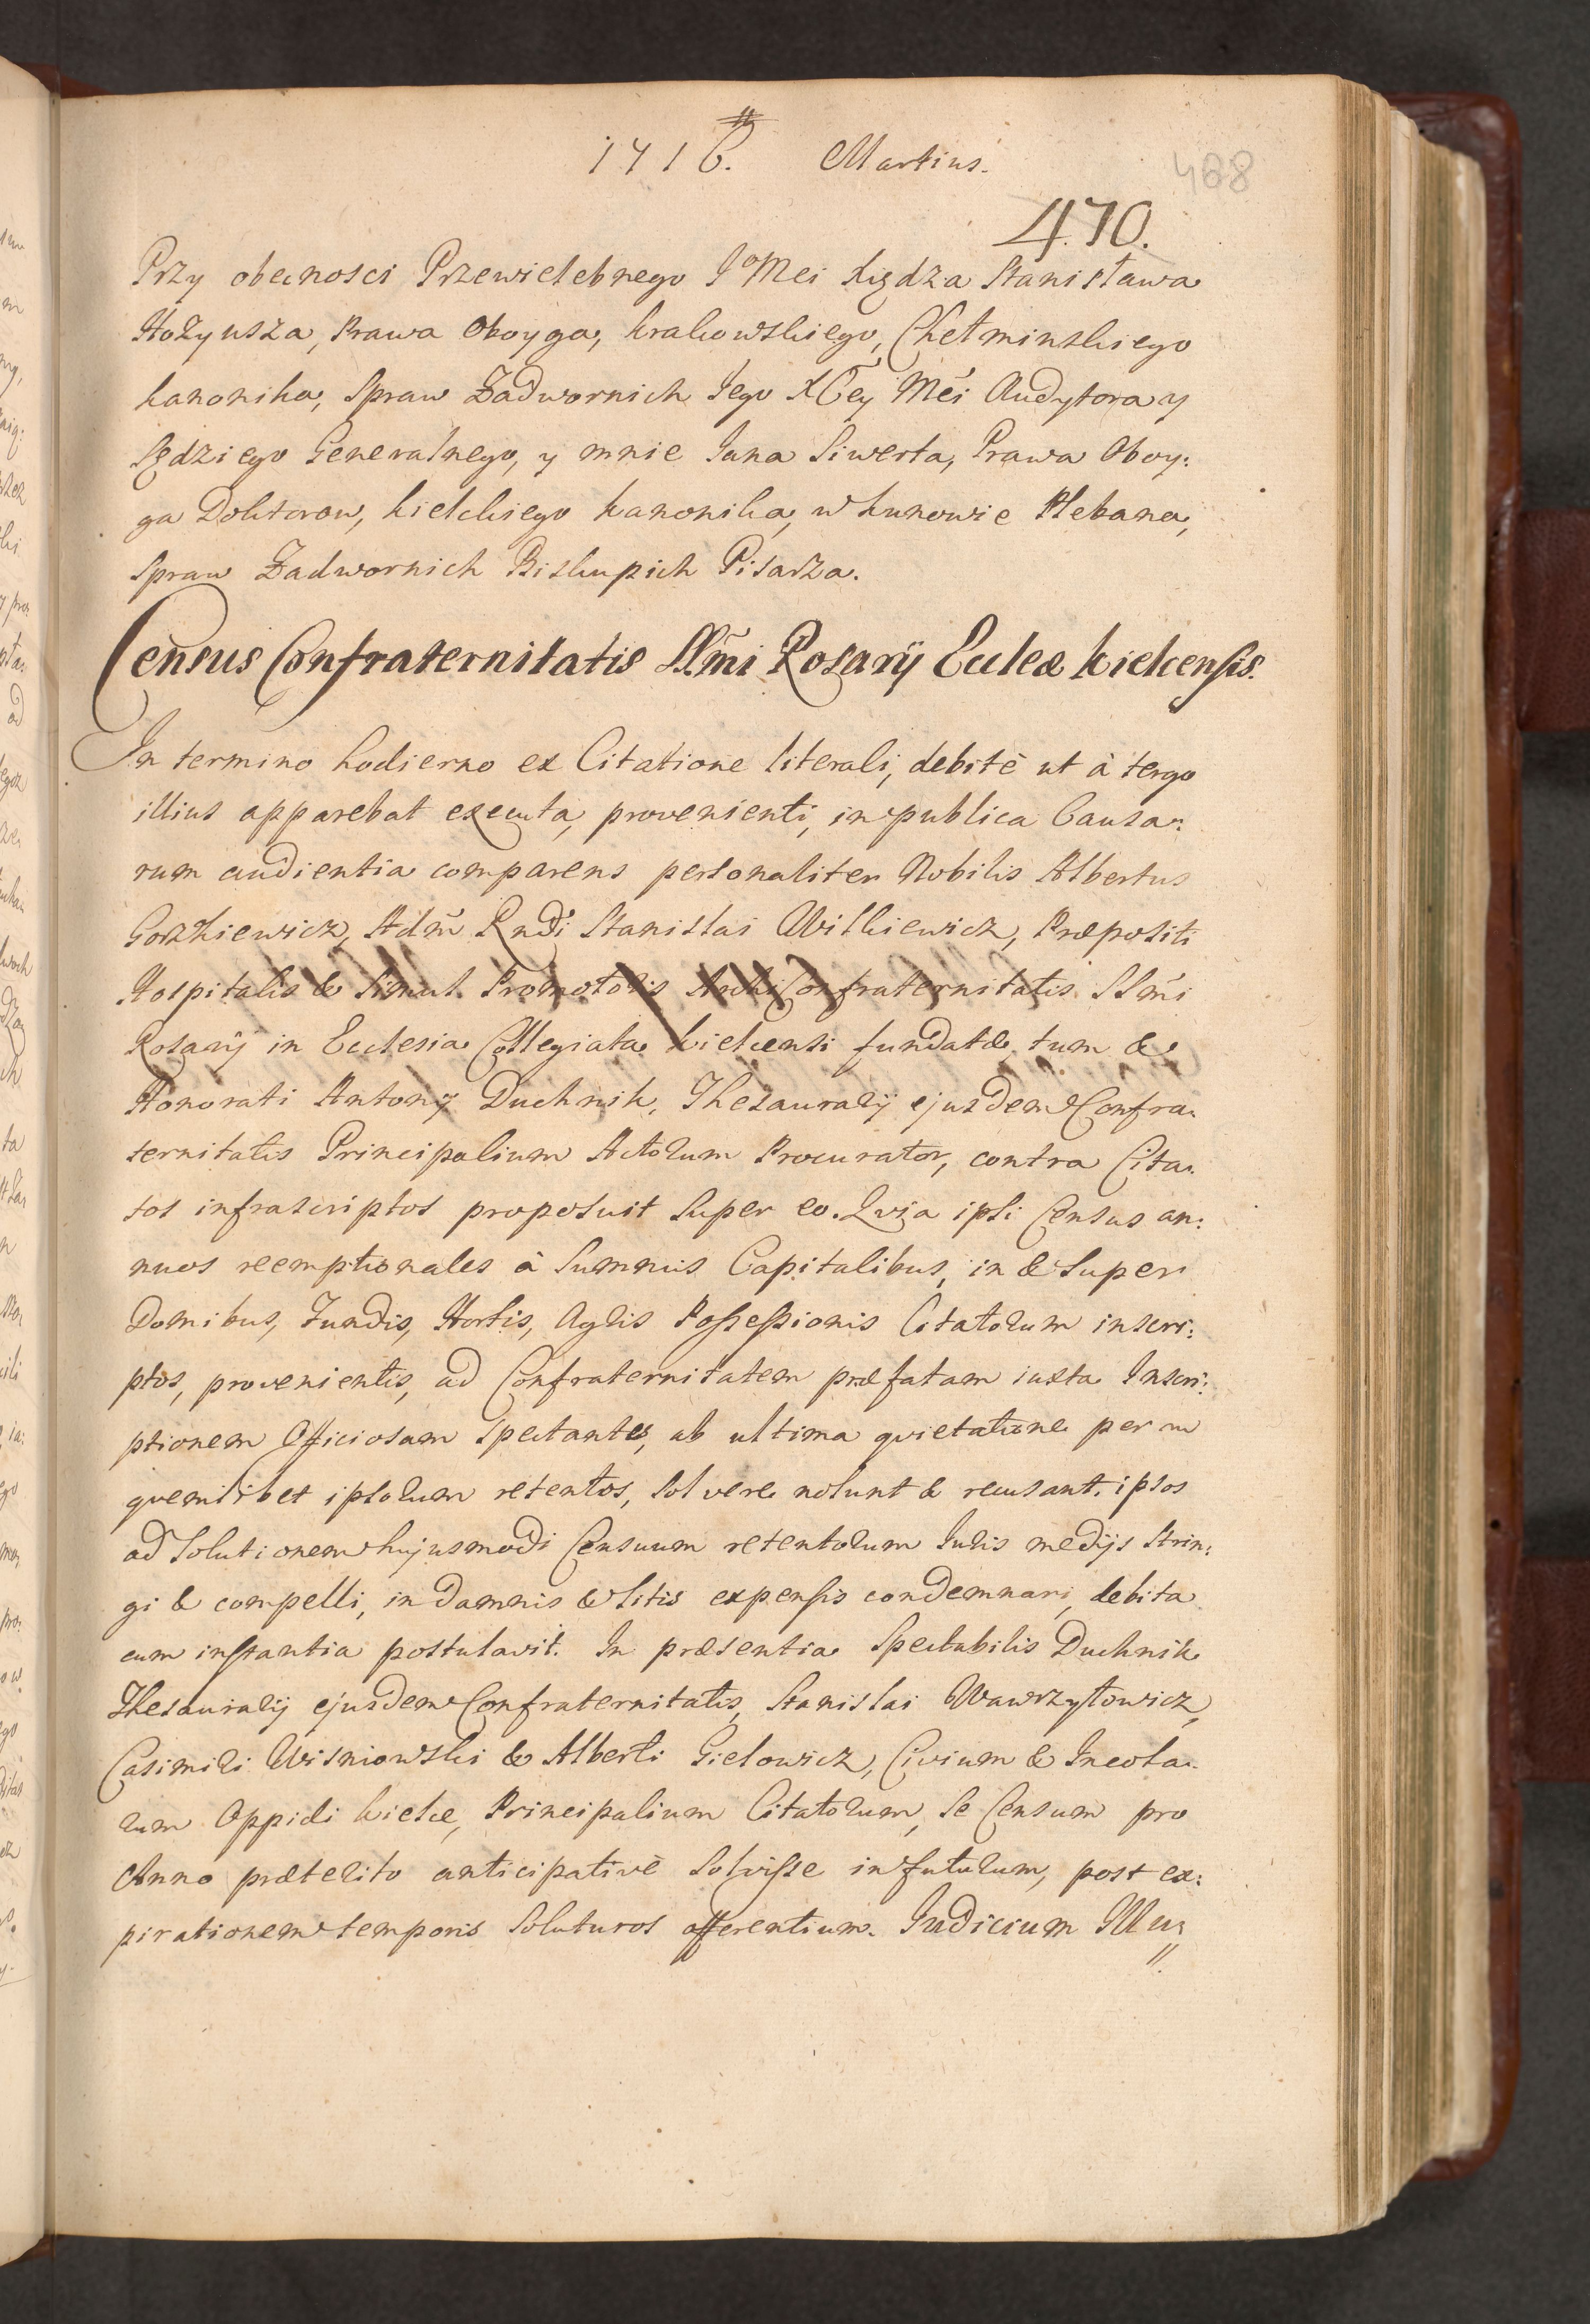 1716. Martius.
468
470.
Przy obecnosci Przewielebnego Jo Mci Xiędza Stanisława
Hozyusza, Prawa Oboyga, Krakowskiego, Chełminskiego
Kanonika, Spraw Zadwornich Jego XCey Mći Audytora y
Sędziego Generalnego, y mnie Jana Siwerta, Prawa Oboy:
ga Doktorow, Kielckiego Kanonika, w Kunowie Plebana,
Spraw Zadwornich Biskupich Pisarza.
Census Confraternitatis SSmi Rosarij Eccleæ Kielcensis.
In termino hodierno ex Citatione literali, debitè ut à tergo
illius apparebat executa, provenienti, in publica Causa:
rum audientia comparens personaliter Nobilis Albertus
Gorzkiewicz, Adm̃ Rndi Stanislai Wilkiewicz, Præpositi
Hospitalis & Simul Promotoris ArchiConfraternitatis SSmi
Rosarij in Ecclesia Collegiata Kielcensi fundatæ, tum &
Honorati Antonij Duchnik, Thesaurarij ejusdem Confra:
ternitatis Principalium Actorum Procurator, contra Cita:
tos infrascriptos proposuit Super eo. Quia ipsi Census an:
nuos reemptionales à Summis Capitalibus, in & Super
Domibus, Fundis, Hortis, Agris Possessionis Citatorum inscri:
ptos, provenientis, ad Confraternitatem præfatam iuxta Inscri:
ptionem Officiosam Spectantes, ab ultima quietatione per
quemlibet ipsorum retentos, Solvere nolunt & recusant. ipsos
ad Solutionem hujusmodi Censuum retentorum Juris medijs Strin:
gi & compelli, in damnis & litis expensis condemnari, debita
cum instantia postulavit. In præsentia Spectabilis Duchnik
Thesaurarij ejusdem Confraternitatis, Stanislai Wawrzytowicz,
Casimiri Wisniowski & Alberti Gielowicz, Civium & Incola:
rum Oppidi Kielce, Principalium Citatorum, Se Censum pro
Anno præterito anticipativè Solvisse in futurum, post ex:
pirationem temporis Soluturos offerentium. Judicium Illu: